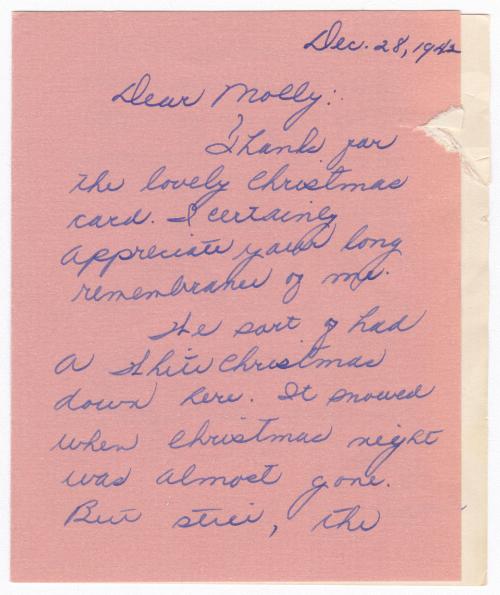 Dec. 28, 1942
Dear Molly:
Thanks for
the lovely Christmas
card. I certainly
appreciate your long
remembrance of me.
We sort of had
a White Christmas
down here. It snowed
when Christmas night
was almost gone.
But still, the